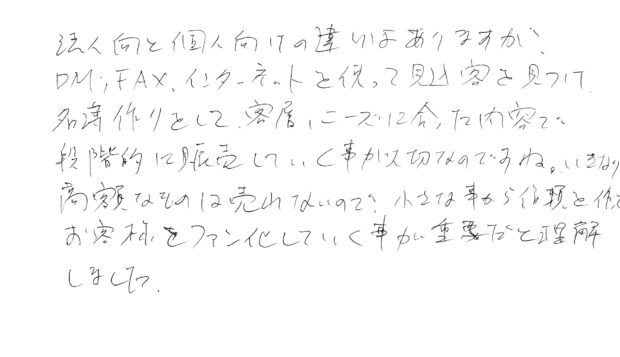 法人向と個人向けの違いはありますが、
DM、FAX、インターネットを使って見込客を見つけ
名簿作りをして、客層、ニーズに合った内容で
段階的に販売していく事が大切なのですね。いきなり
高額なものは売れないので、小さな事から信頼を作って
お客様をファン化していく事が重要だと理解
しました。